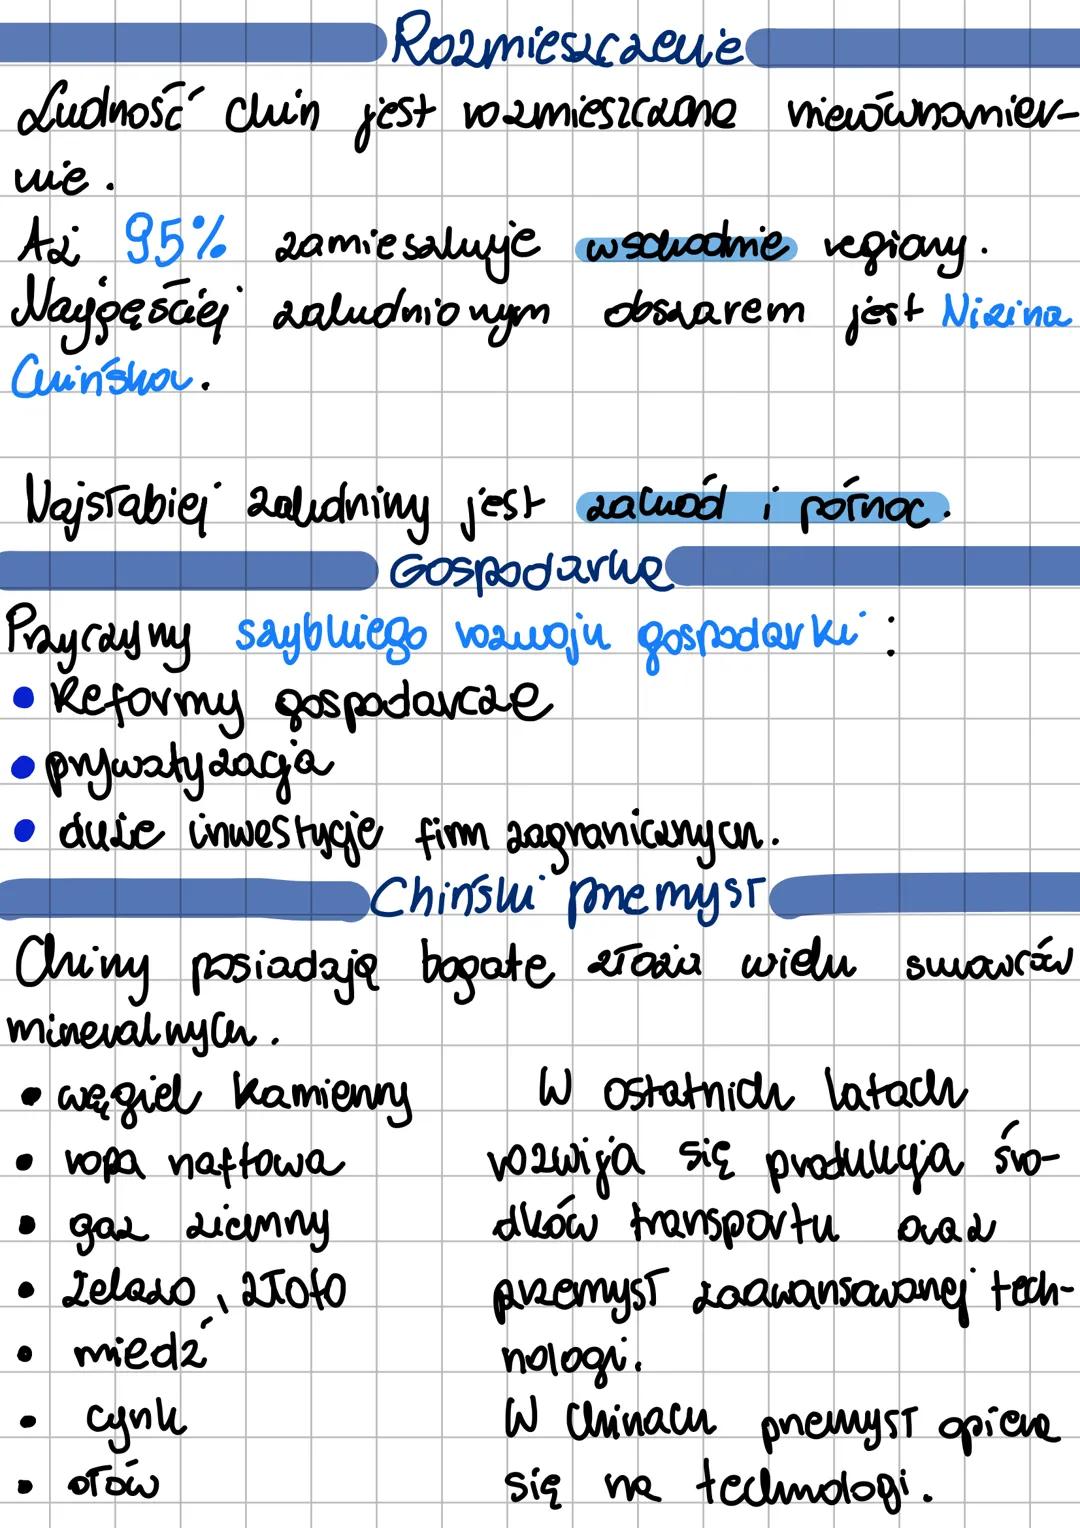 Rozmieszczenie
Ludność Chin jest rozmieszczona nierównomier-
nie.
Aż 95% zamieszkuje wschodnie regiony.
Najgęściej zaludnionym obszarem jest Nizina
Chińska.
Najsłabiej zaludniny jest zachód i północ.
Gospodarka
Przyczyny szybkiego rozwoju gospodarki:
• Reformy gospodarcze
• prywatyzacja
• duże inwestycje firm zagranicznych.
Chiński przemysł
Chiny posiadają bogate złoża wielu surowców
mineralnych.
• węgiel kamienny
• ropa naftowa
• gaz ziemny
• żelazo, złoto
• miedź
• cynk
• ołów
W ostatnich latach
rozwija się produkcja śro-
dków transportu oraz
przemysł zaawansowanej tech-
nologi.
W Chinach przemysł opiera
się na technologi.